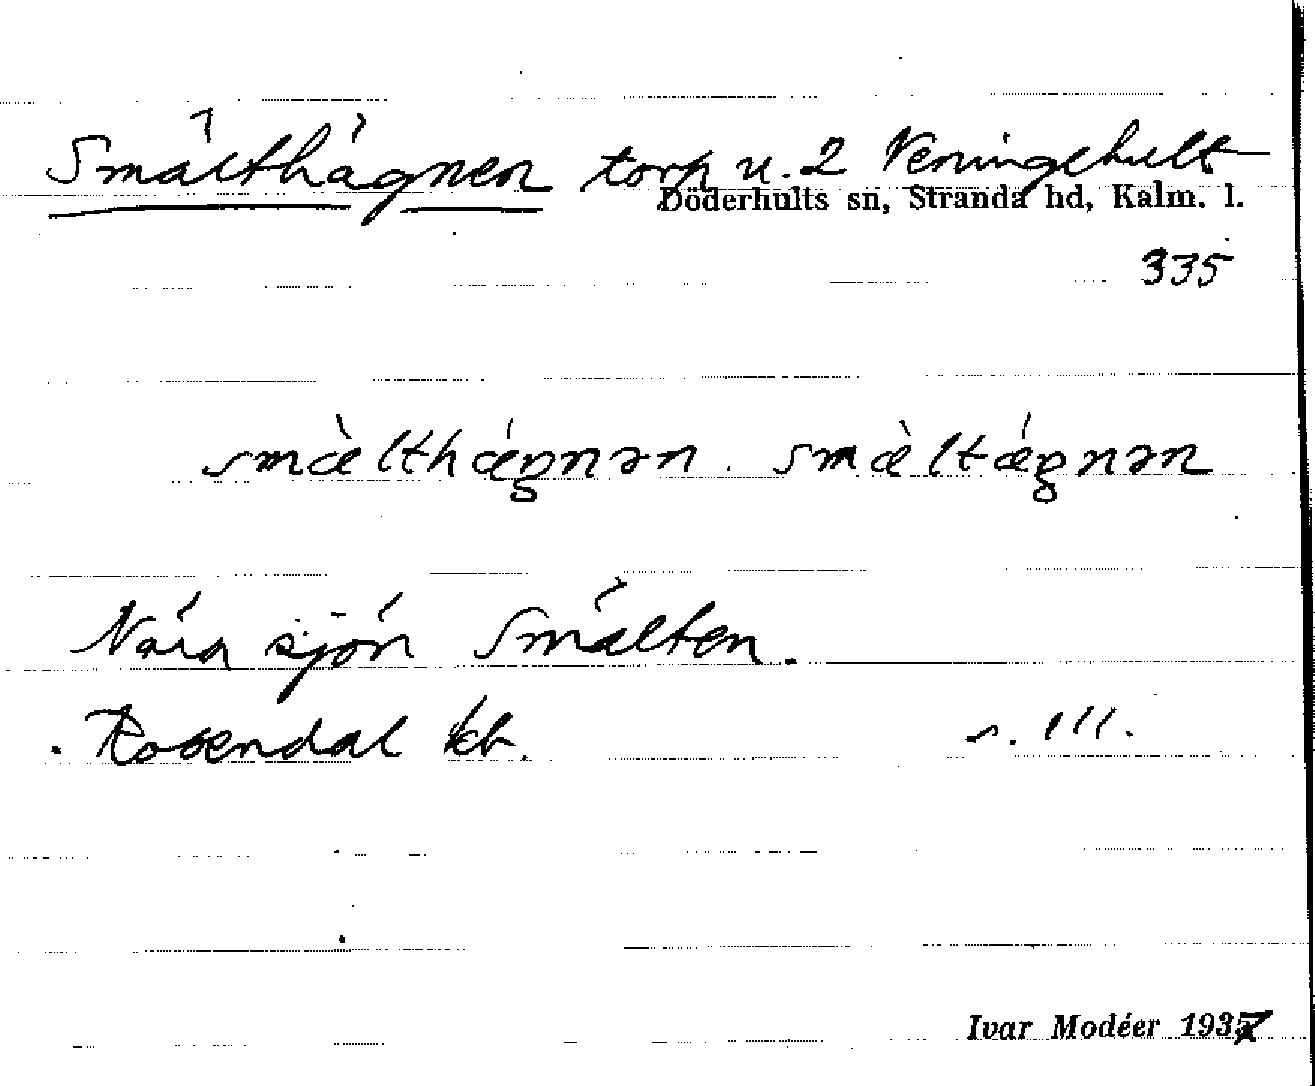 Smälthägnen torp u. 2 Veningehult
Döderhults sn, Stranda hd, Kalm. l.
335
smæ̀lthǽgnən smæ̀ltǽgnən
Nära sjön Smälten.
Rosendal kb. s. III.
Ivar Modéer 1937